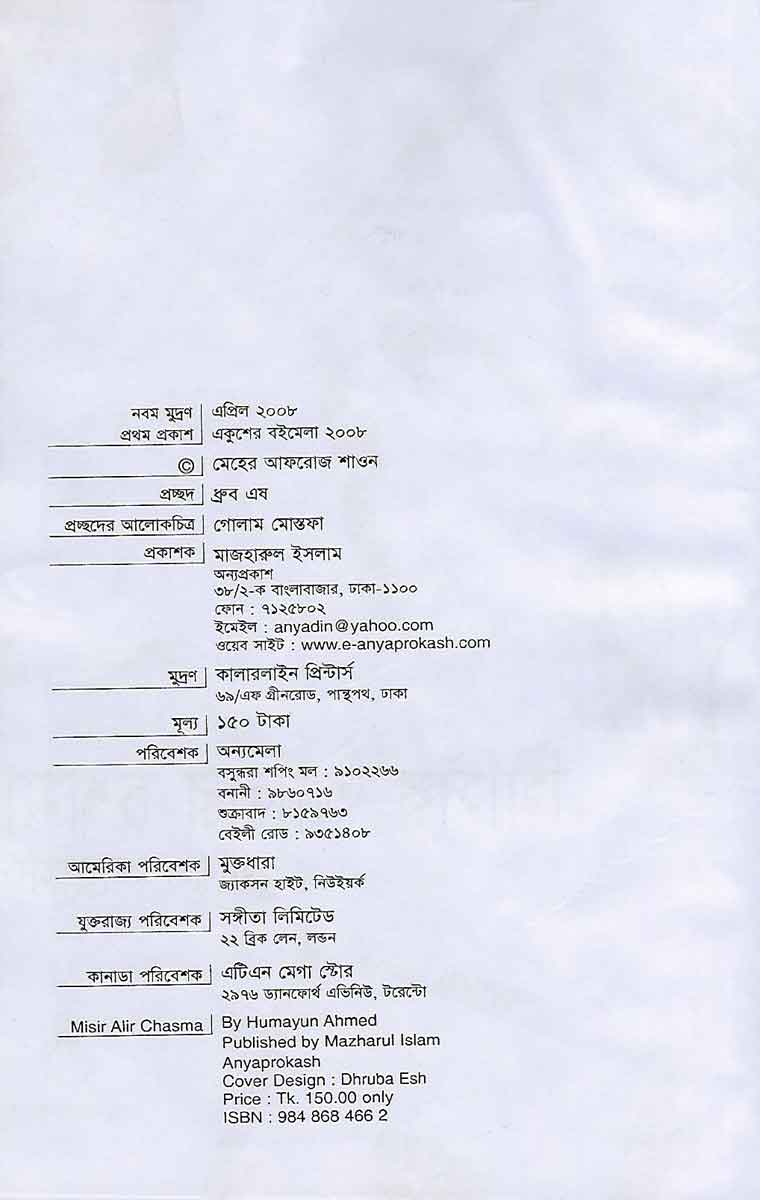 নবম মুদ্রণ এপ্রিল ২০০৮
প্রথম প্রকাশ একুশের বইমেলা ২০০৮
© মেহের আফরোজ শাওন
প্রচ্ছদ ধ্রুব এষ
প্রচ্ছদের আলোকচিত্র গোলাম মোস্তফা
প্রকাশক মাজহারুল ইসলাম
অন্যপ্রকাশ
৩৮/২-ক বাংলাবাজার, ঢাকা-১১০০
ফোন : ৭১২৫৮০২
ইমেইল : anyadin@yahoo.com
ওয়েব সাইট : www.e-anyaprokash.com
মুদ্রণ কালারলাইন প্রিন্টার্স
৬৯/এফ গ্রীনরোড, পান্থপথ, ঢাকা
মূল্য ১৫০ টাকা
পরিবেশক অন্যমেলা
বসুন্ধরা শপিং মল : ৯১০২২৬৬
বনানী : ৯৮৬০৭১৬
শুক্রাবাদ : ৮১৫৯৭৬৩
বেইলী রোড : ৯৩৫১৪০৮
আমেরিকা পরিবেশক মুক্তধারা
জ্যাকসন হাইট, নিউইয়র্ক
যুক্তরাজ্য পরিবেশক সঙ্গীতা লিমিটেড
২২ ব্রিক লেন, লন্ডন
কানাডা পরিবেশক এটিএন মেগা স্টোর
২৯৭৬ ড্যানফোর্থ এভিনিউ, টরেন্টো
Misir Alir Chasma By Humayun Ahmed
Published by Mazharul Islam
Anyaprokash
Cover Design : Dhruba Esh
Price : Tk. 150.00 only
ISBN : 984 868 466 2